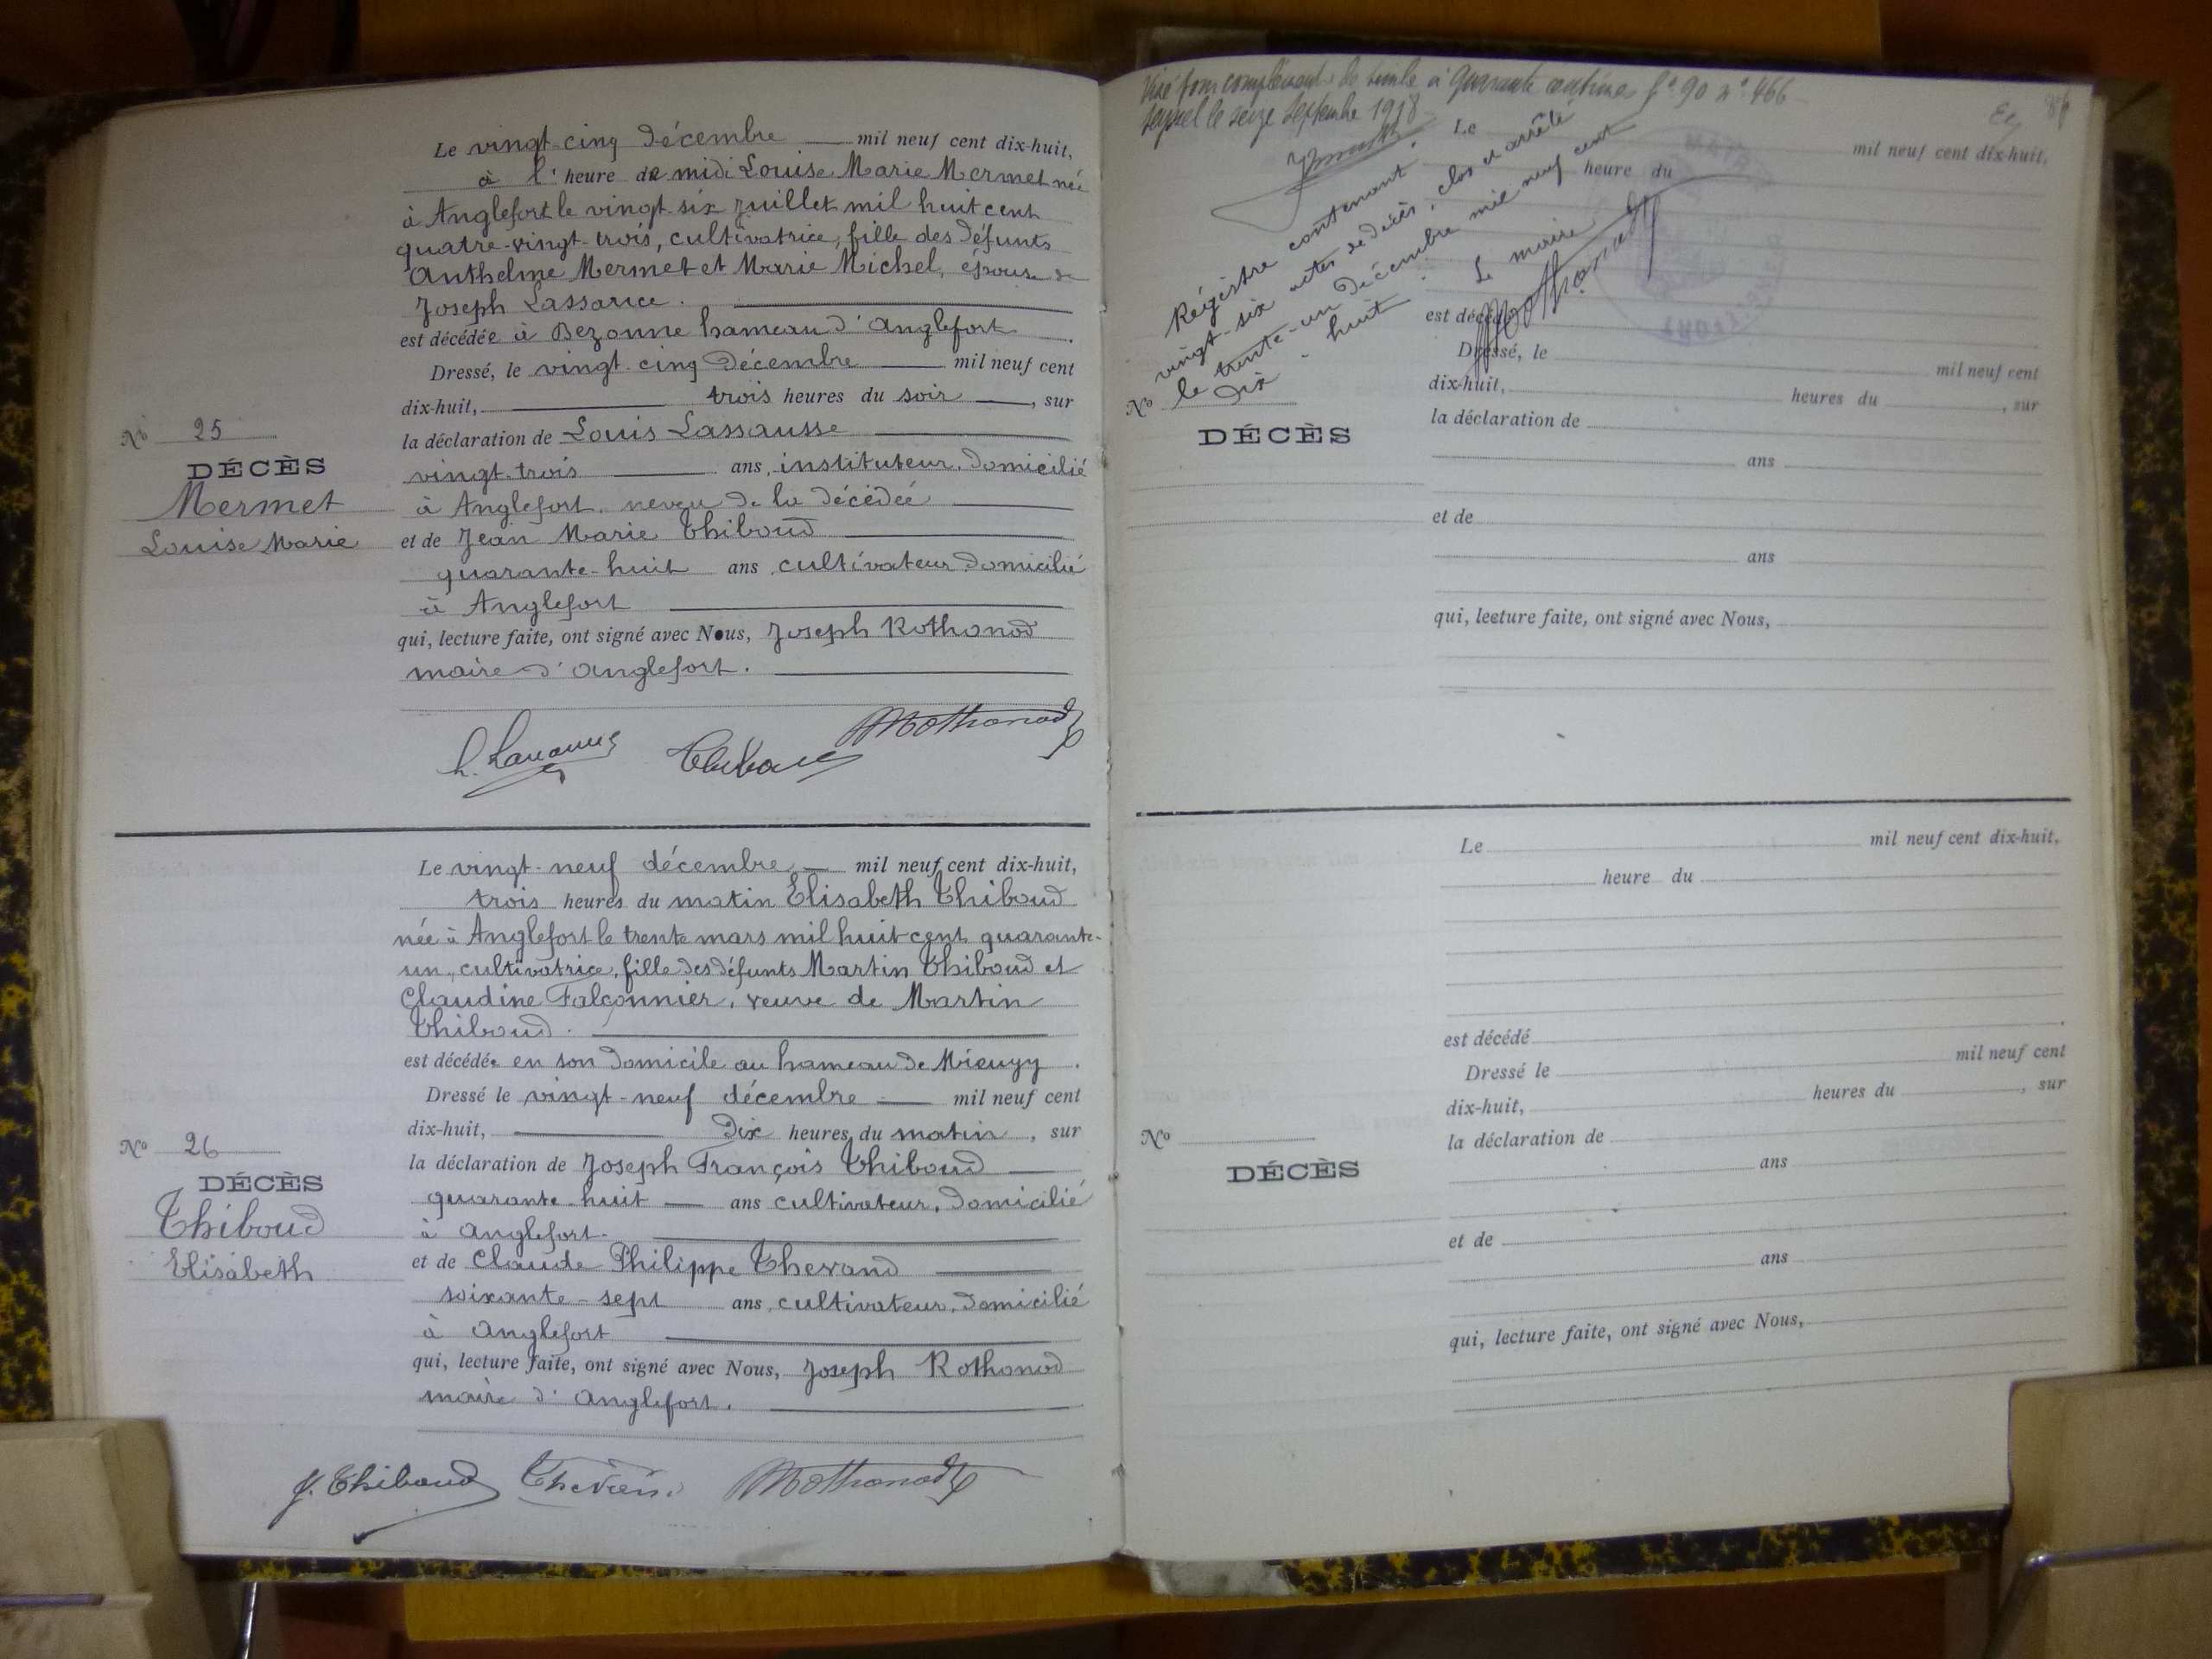 Le vingt-cinq décembre mil neuf cent dix-huit,
à l'heure de midi Louise Marie Mermet née
à Anglefort le vingt-six juillet mil huit cent
quatre-vingt-trois, cultivatrice, fille des défunts
Anthelme Mermet et Marie Michel, épouse de
Joseph Lassauce.
est décédée à Bezonne hameau d'Anglefort.
Dressé, le vingt-cinq décembre mil neuf cent
dix-huit, trois heures du soir, sur
la déclaration de Louis Lassausse
vingt-trois ans, instituteur, domicilié
à Anglefort, neveu de la décédée
et de Jean Marie Thiboud
quarante-huit ans, cultivateur domicilié
à Anglefort
qui, lecture faite, ont signé avec Nous, Joseph Rothonod
maire d'Anglefort.
No 25
DÉCÈS
Mermet
Louise Marie
Rothonod
Le vingt-neuf décembre mil neuf cent dix-huit,
trois heures du matin Elisabeth Thiboud
née à Anglefort le trente mars mil huit cent quarante-
un, cultivatrice, fille des défunts Martin Thiboud et
Claudine Falconnier, veuve de Martin
Thiboud.
est décédée en son domicile au hameau de Mieugy.
Dressé le vingt-neuf décembre mil neuf cent
dix-huit, dix heures du matin, sur
la déclaration de Joseph François Thiboud
quarante-huit ans cultivateur, domicilié
à Anglefort.
et de Claude Philippe Thevand
soixante-sept ans, cultivateur, domicilié
à Anglefort
qui, lecture faite, ont signé avec Nous, Joseph Rothonod
maire d'Anglefort.
No 26
DÉCÈS
Thiboud
Elisabeth
J. Thiboud Rothonod
Visé pour complément de timbre à quarante centimes fo 90 no 466
Seyssel le seize Septembre 1918
Régistre contenant
vingt-six actes de décès, clos et arrêté
le trente-un décembre mil neuf cent
dix-huit.
Le maire
Rothonod
Le mil neuf cent dix-huit,
heure du
est décédé
Dressé, le mil neuf cent
dix-huit, heures du , sur
la déclaration de
ans
et de
ans
qui, lecture faite, ont signé avec Nous,
No
DÉCÈS
Le mil neuf cent dix-huit,
heure du
est décédé
Dressé le mil neuf cent
dix-huit, heures du , sur
la déclaration de
ans
et de
ans
qui, lecture faite, ont signé avec Nous,
No
DÉCÈS